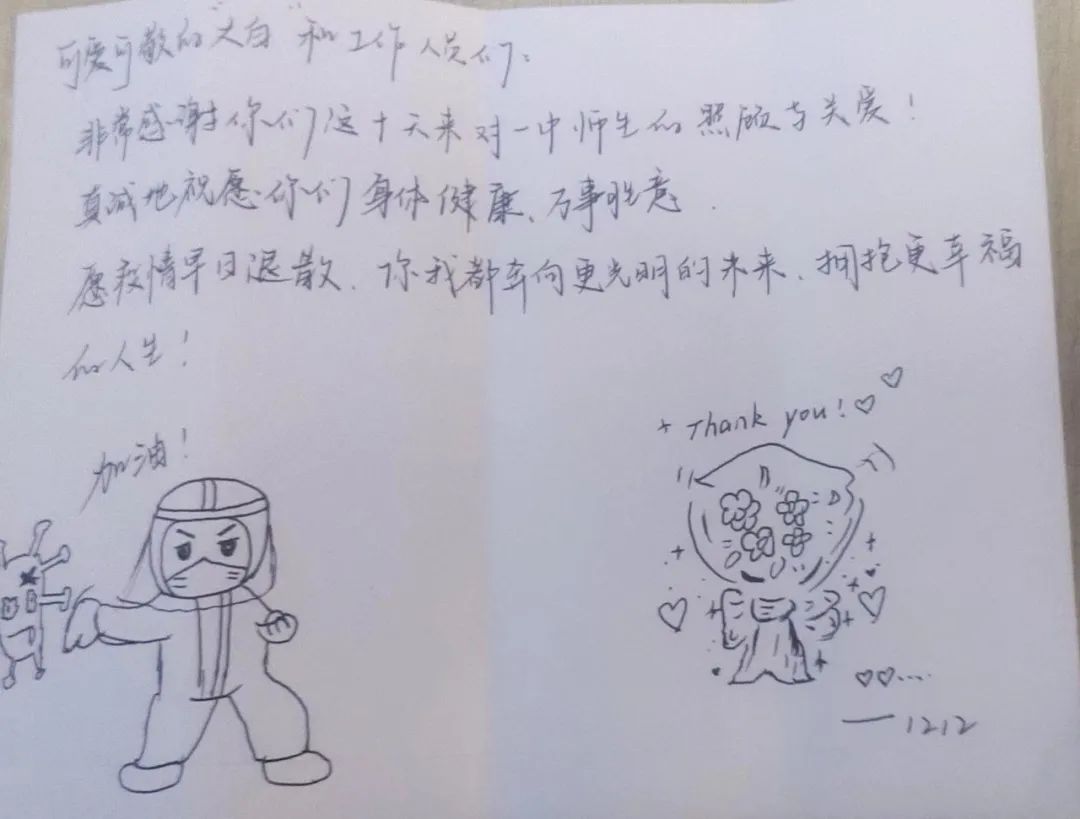 可爱可敬的"大白"和工作人员们：
非常感谢你们这十天来对一中师生的照顾与关爱！
真诚地祝愿你们身体健康、万事胜意.
愿疫情早日退散、你我都奔向更光明的未来、拥抱更幸福
的人生！
加油！
Thank you!
——1212